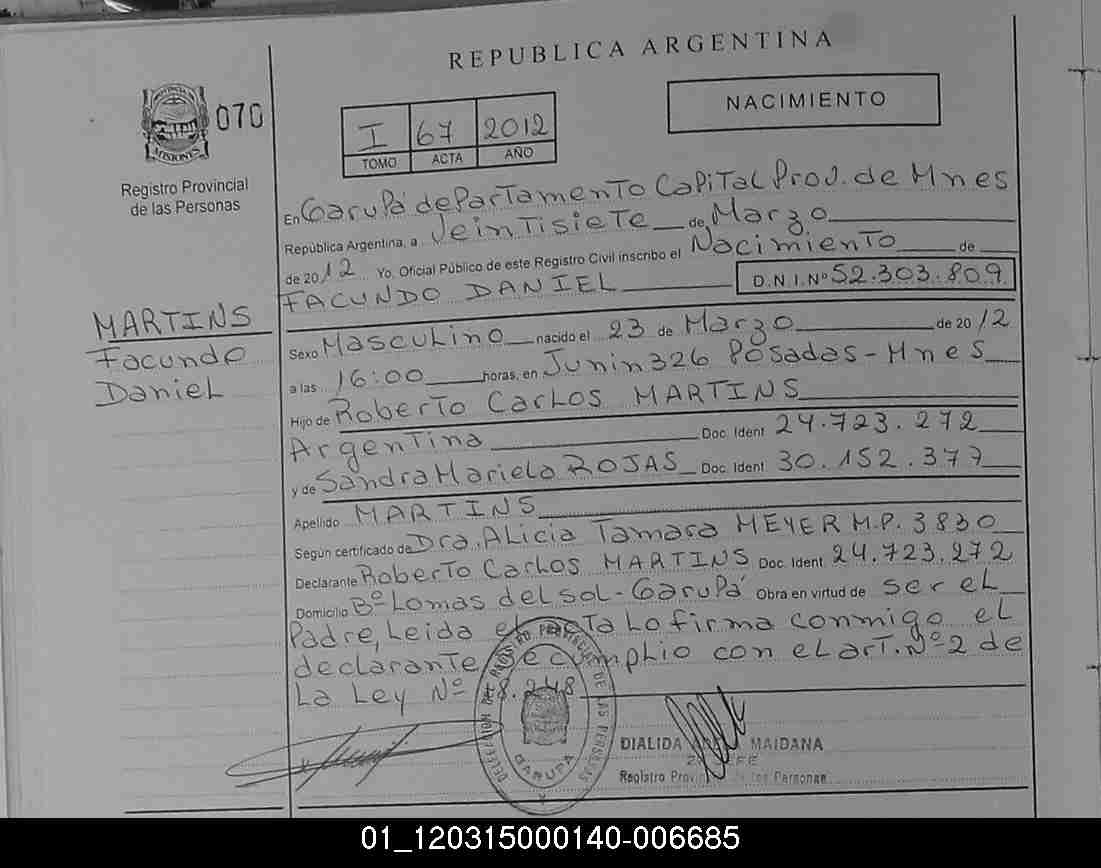 REPUBLICA ARGENTINA
PROVINCIA DE
MISIONES
070
Registro Provincial
de las Personas
I 67 2012
TOMO ACTA AÑO
NACIMIENTO
En Garupá departamento Capital Prov. de Mnes
República Argentina, a Veintisiete de Marzo
de 2012 Yo, Oficial Público de este Registro Civil inscribo el Nacimiento de
FACUNDO DANIEL D.N.I.Nº 52.303.809
MARTINS
Facundo
Daniel
Sexo Masculino nacido el 23 de Marzo de 2012
a las 16:00 horas, en Junin 326 Posadas - Mnes
Hijo de Roberto Carlos MARTINS
Argentina Doc. Ident 24.723.272
y de Sandra Mariela ROJAS Doc. Ident 30.152.377
Apellido MARTINS
Según certificado de Dra. Alicia Tamara MEYER M.P. 3830
Declarante Roberto Carlos MARTINS Doc. Ident 24.723.272
Domicilio Bº Lomas del sol - Garupá Obra en virtud de ser el
Padre, Leida el acta la firma conmigo el
declarante, se cumplio con el art. Nº 2 de
La Ley Nº 18.248
DELEGACION DEL REGISTRO PROVINCIAL DE LAS PERSONAS
GARUPA
DIALIDA MAIDANA
JEFE
Registro Prov. de las Personas
01_120315000140-006685